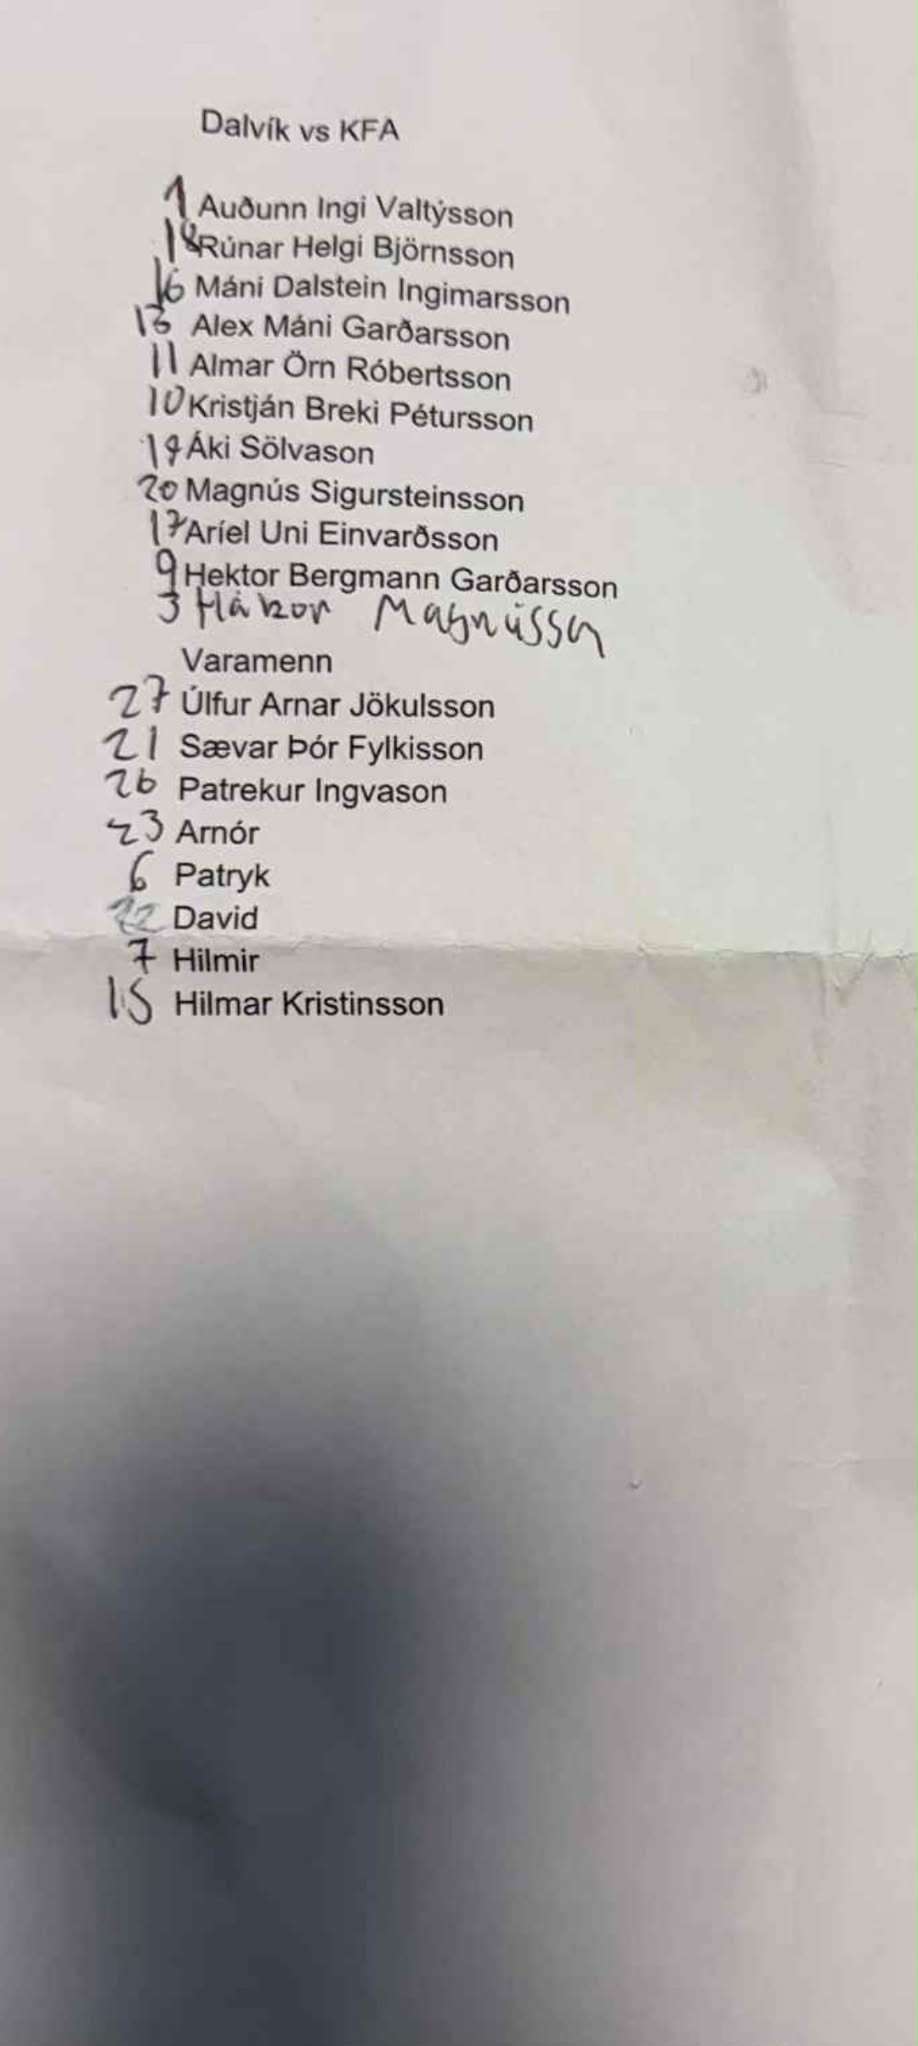 Dalvík vs KFA
1 Auðunn Ingi Valtýsson
18 Rúnar Helgi Björnsson
16 Máni Dalstein Ingimarsson
13 Alex Máni Garðarsson
11 Almar Örn Róbertsson
10 Kristján Breki Pétursson
19 Áki Sölvason
20 Magnús Sigursteinsson
17 Aríel Uni Einvarðsson
9 Hektor Bergmann Garðarsson
3 Hákon Magnússon
Varamenn
27 Úlfur Arnar Jökulsson
21 Sævar Þór Fylkisson
26 Patrekur Ingvason
23 Arnór
6 Patryk
22 David
7 Hilmir
15 Hilmar Kristinsson